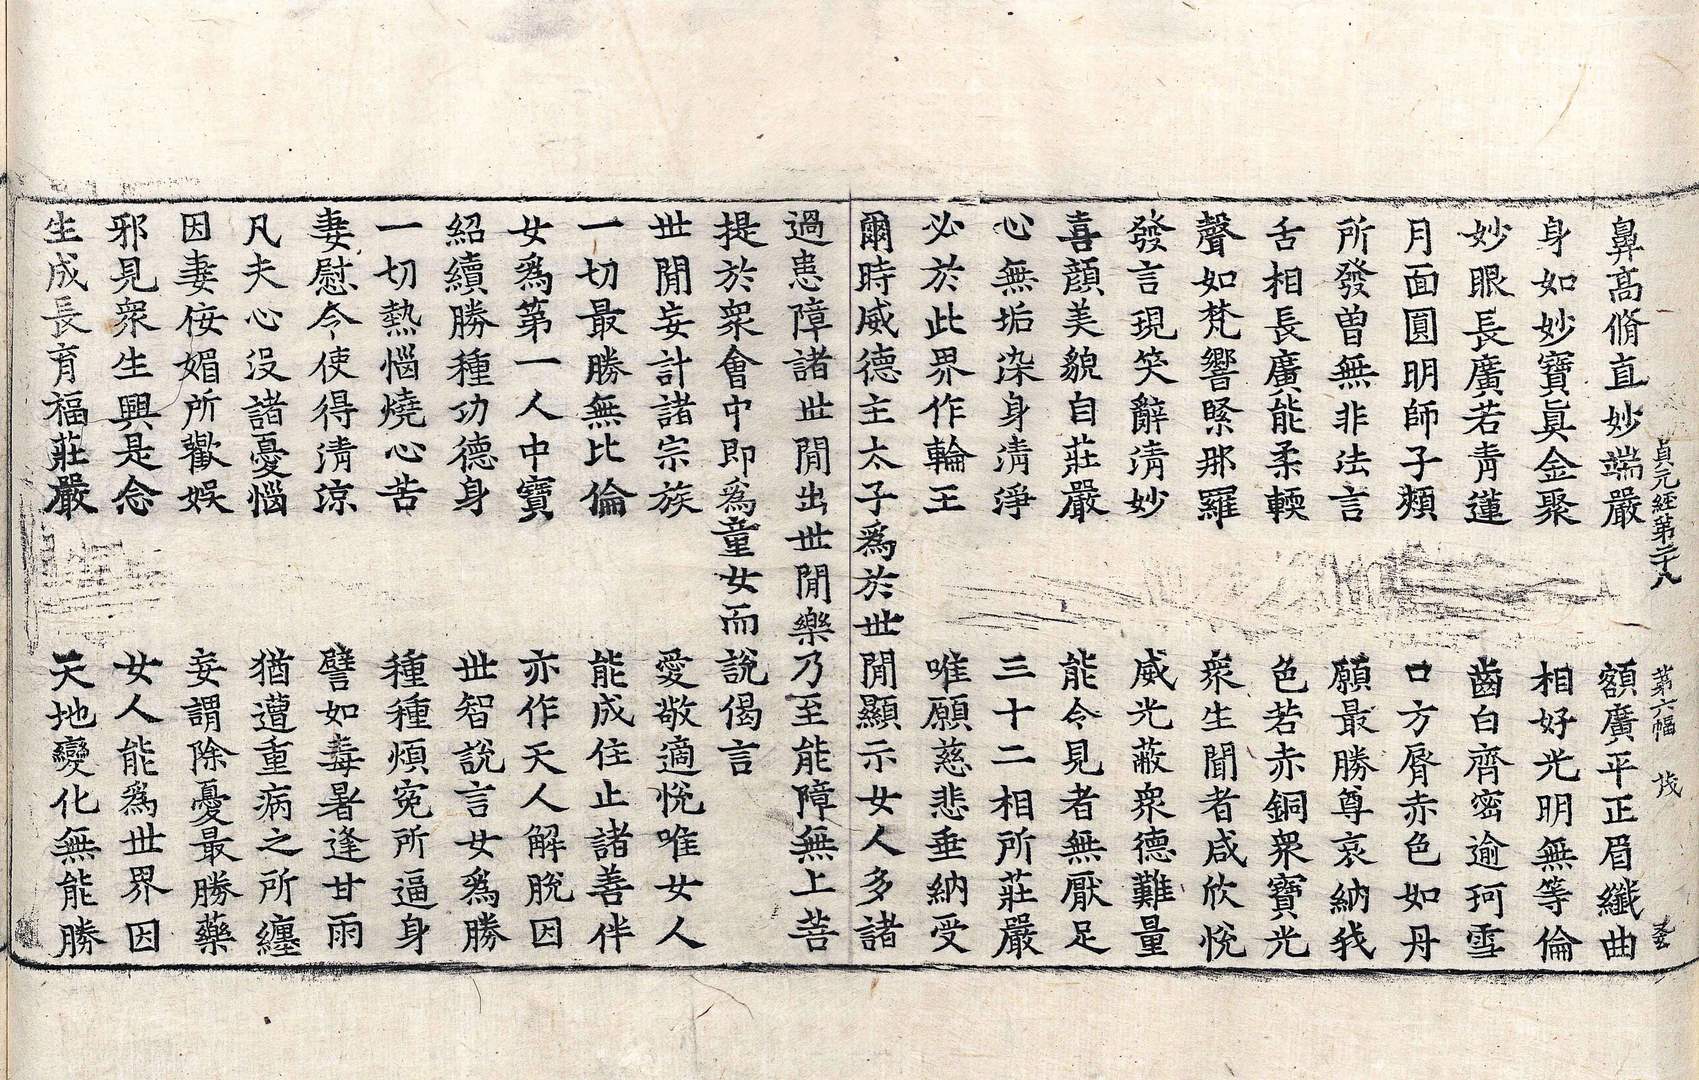 貞元經第二十八 第六幅 茂
鼻高脩直妙端嚴 額廣平正眉纖曲
身如妙寶真金聚 相好光明無等倫
妙眼長廣若青蓮 齒白齊密逾珂雪
月面圓明師子頰 口方脣赤色如丹
所發曽無非法言 願最勝尊哀納我
舌相長廣能柔輭 色若赤銅衆寶光
聲如梵響緊那羅 衆生聞者咸欣悅
發言現笑辭清妙 威光蔽衆德難量
喜顔美貌自莊嚴 能令見者無厭足
心無垢染身清淨 三十二相所莊嚴
必於此界作輪王 唯願慈悲垂納受
爾時威德主太子爲於世閒顯示女人多諸
過患障諸世閒出世閒樂乃至能障無上菩
提於衆會中即爲童女而說偈言
世閒妄計諸宗族 愛敬適悅唯女人
一切最勝無比倫 能成住止諸善伴
女爲第一人中寶 亦作天人解脫因
紹續勝種功德身 世智說言女爲勝
一切熱惱燒心苦 種種煩冤所逼身
妻慰令使得清涼 譬如毒暑逢甘雨
凡夫心没諸憂惱 猶遭重病之所纏
因妻侫媚所歡娛 妄謂除憂最勝藥
邪見衆生興是念 女人能爲世界因
生成長育福莊嚴 天地變化無能勝